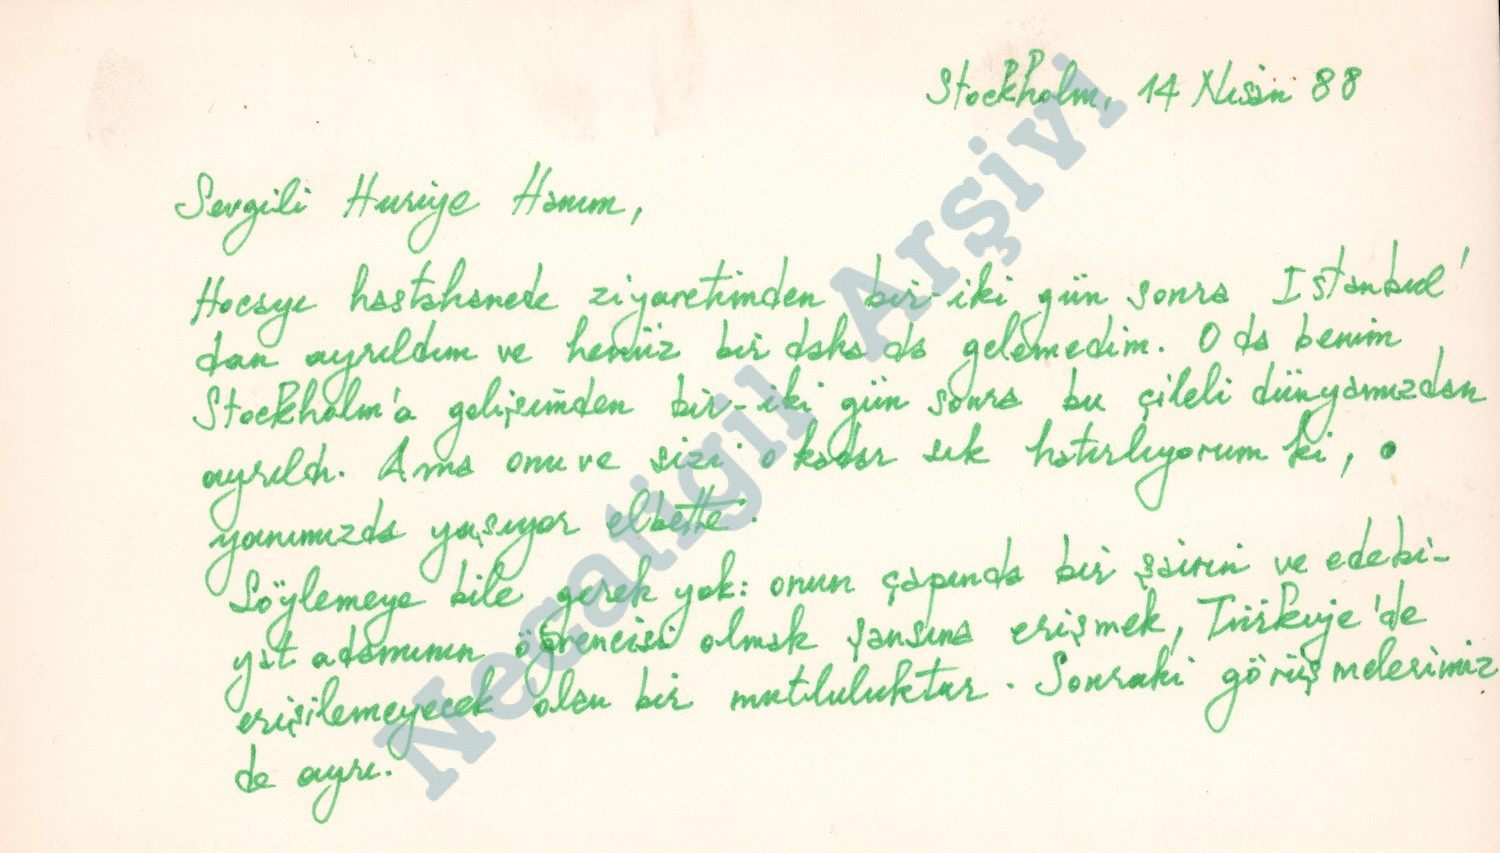 Stockholm, 14 Nisan 88
Sevgili Huriye Hanım,
Hocayı hastahanede ziyaretimden bir-iki gün sonra Istanbul'
dan ayrıldım ve henüz bir daha da gelemedim. O da benim
Stockholm'a gelişimden bir-iki gün sonra bu çileli dünyamızdan
ayrıldı. Ama onu ve sizi o kadar sık hatırlıyorum ki, o
yanımızda yaşıyor elbette.
Söylemeye bile gerek yok: onun çapında bir şairin ve edebi-
yat adamının öğrencisi olmak şansına erişmek, Türkiye'de
erişilemeyecek olan bir mutluluktur. Sonraki görüşmelerimiz
de ayrı.
Necatigil Arşivi